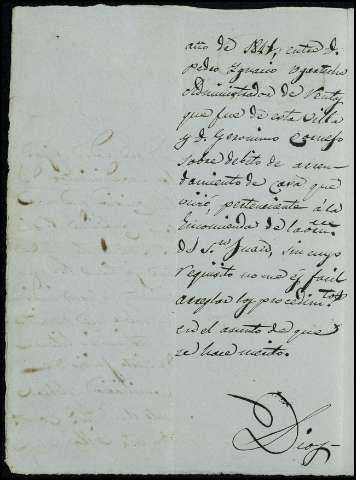 año de 1841, entre D.
pedro Ygnacio
Administrador de Rentas
que fue de esta Villa
y D. Geronimo Cornejo
sobre debito de arren-
damiento de casa que
vivió, perteneciente á la
Encomienda de la orn.
de S.n Juan, sin cuyo
requisito no me es facil
arreglar los procedim.tos
en el asunto de que
se hace merito.
Dios